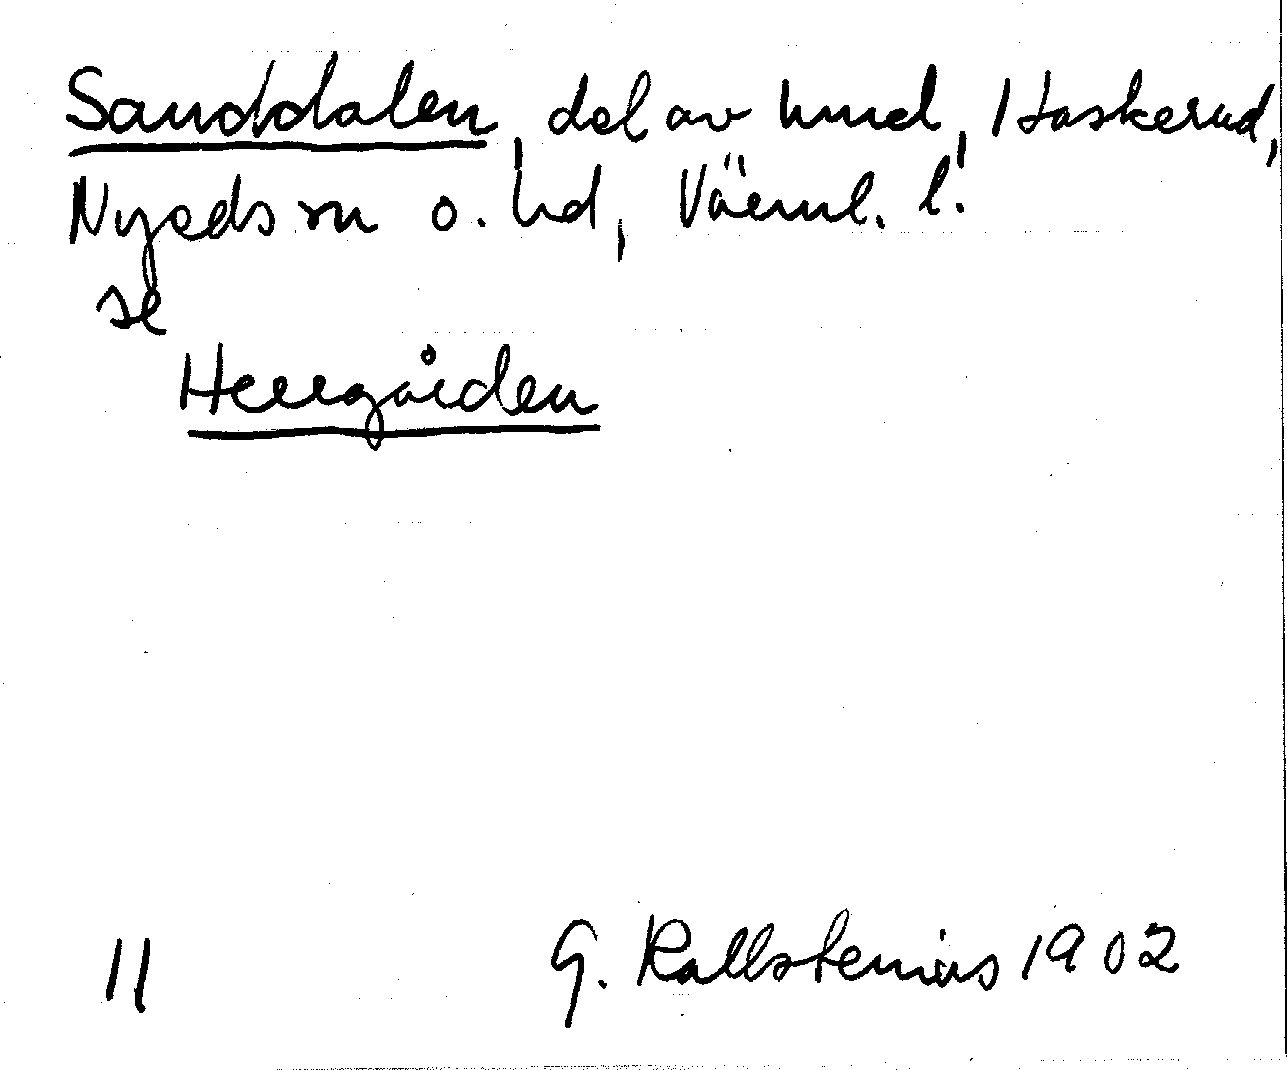 Sanddalen, del av hmd, Haskerud,
Nyeds sn o. hd, Värml. l.
se
Herrgården
11 G. Kallstenius 1902